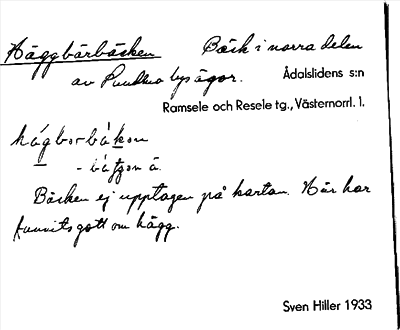 Häggbärbäcken Bäck i norra delen
av byägor. Ådalslidens s:n
Ramsele och Resele tg., Västernorrl. l.
Bäcken ej upptagen på kartan. Här har
funnits gott om hägg.
Sven Hiller 1933